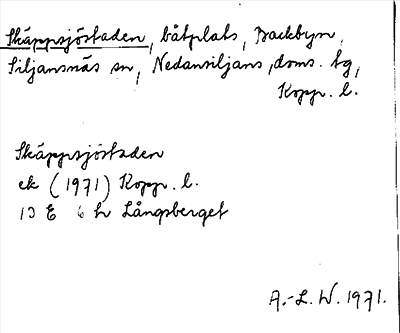 Skäppsjöstaden, båtplats, Backbyn,
Siljansnäs sn, Nedansiljans, doms. tg,
Kopp. l.
Skäppsjöstaden
ek (1971) Kopp. l.
13 E 6 h Långsberget
A.-L. W. 1971.